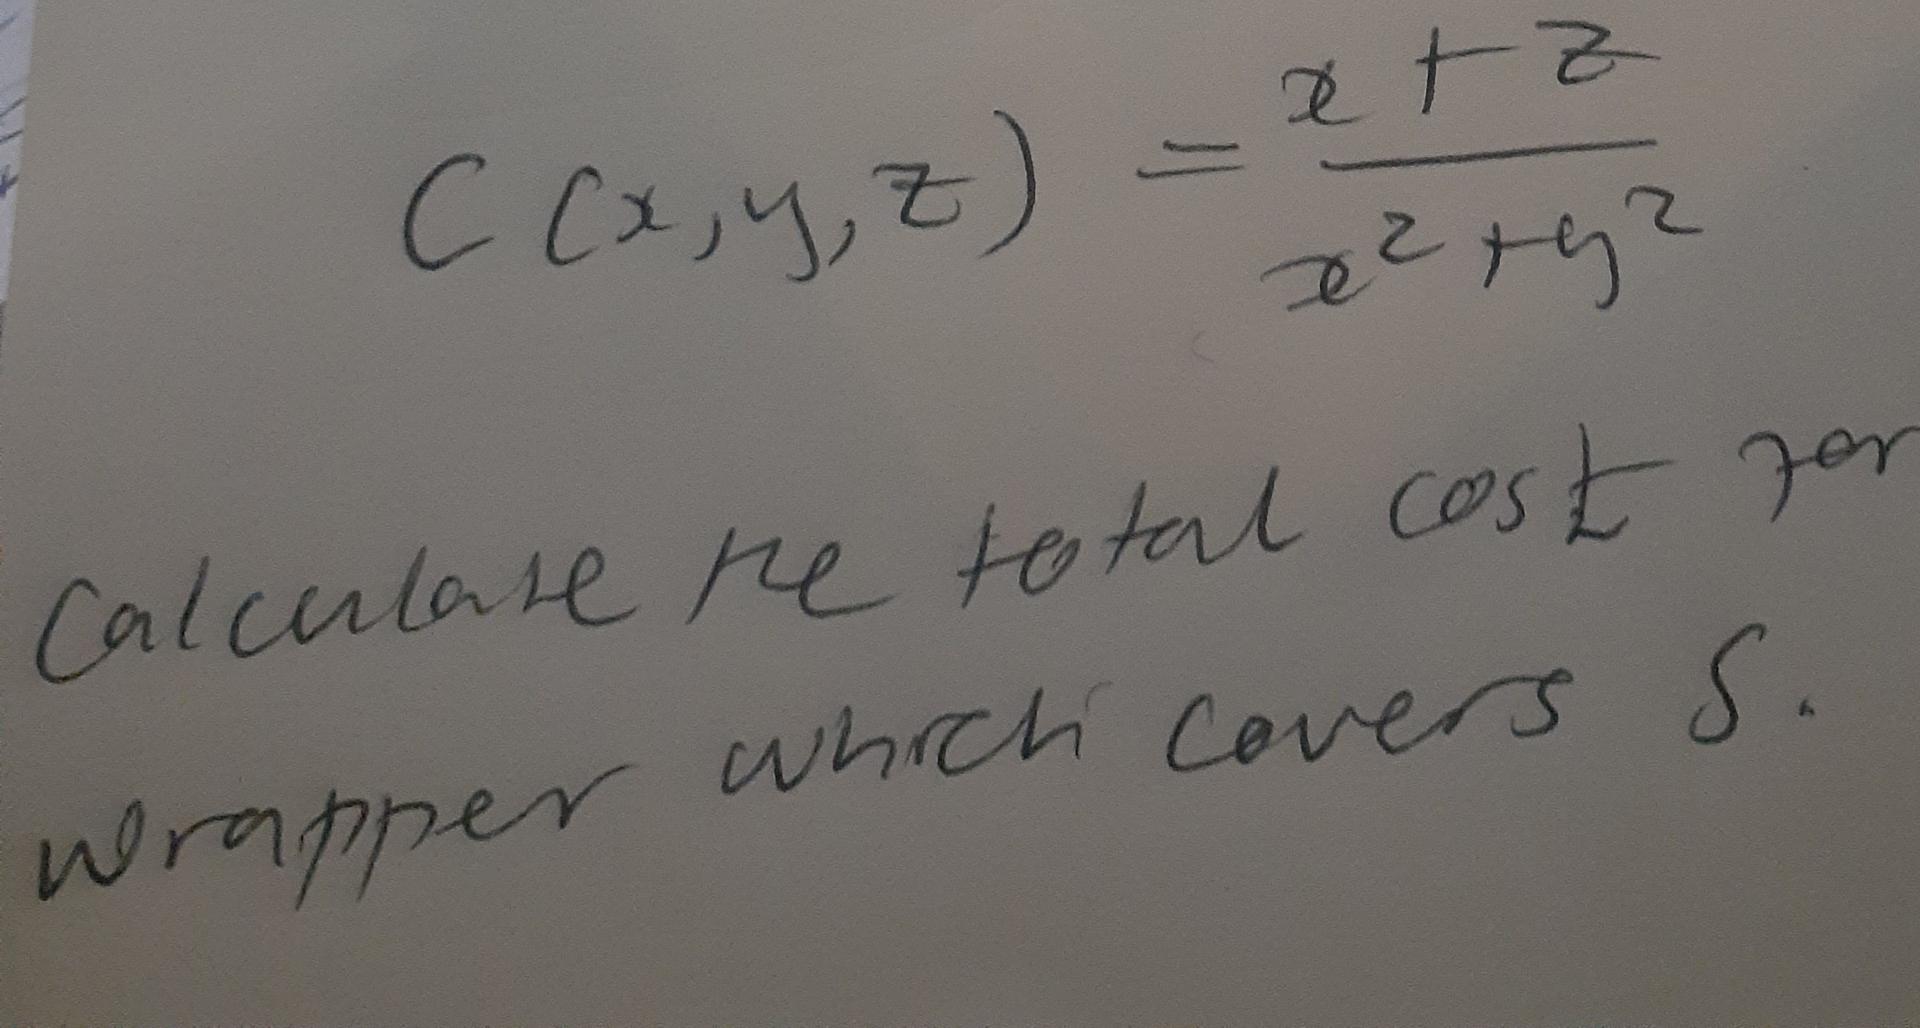 C(x,y,z) = \frac{x+z}{x^2+y^2}
Calculate the total cost for
wrapper which covers S.